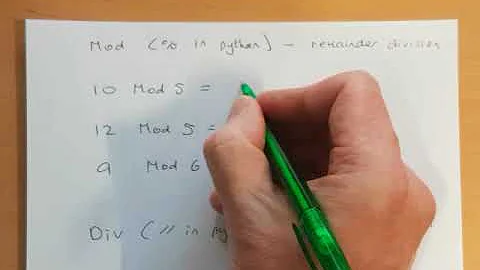 Mod (% in python) - remainder division
10 Mod 5 =
12 Mod 5 =
9 Mod 6
Div ( // in py